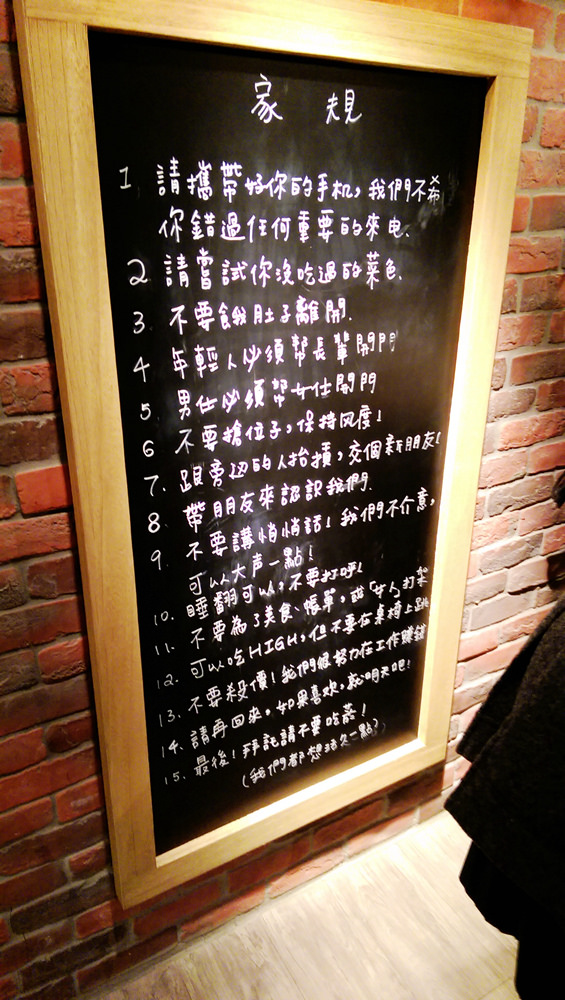 家 規
1 請攜帶好你的手机，我們不希
你錯過任何重要的來电.
2 請嘗試你沒吃過的菜色.
3 不要餓肚子離開.
4 年輕人必須幫長輩開門
5. 男仕必須幫女仕開門
6 不要搶位子，保持风度！
7. 跟旁辺的人抬摃，交個新朋友！
8 帶朋友來認識我們.
9. 不要講悄悄話！我們不介意，
可以大声一點！
10. 睡翻可以，不要打呼！
11. 不要為了美食、帳單，或「女人」打架
12. 可以吃HIGH，但不要在桌椅上跳
13. 不要殺價！我們很努力在工作賺錢
14. 請再回來，如果喜欢，就明天吧！
15. 最後！拜託請不要吃菸！
（我們都想活久一點）